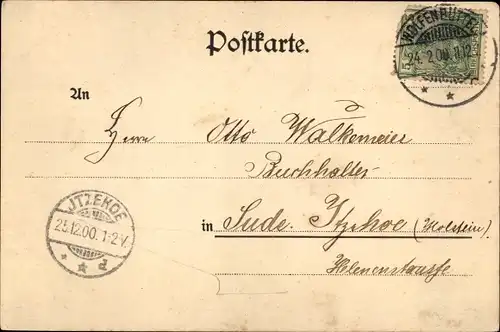 Postkarte.
WOLFENBÜTTEL
24.12.00. 11-12V.
* *
An
Herrn Otto Walkemeier
Buchhalter
in Sude. Itzehoe (Holstein).
Helenenstrasse
JTZEHOE
25.12.00. 1-2V.
* * d